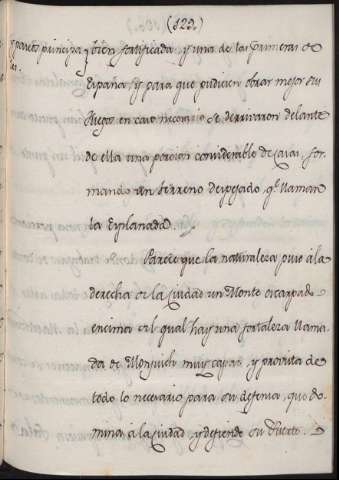 (123.)
y bien fortificada, y una de las primeras de
España, y para que pudiesen obrar mejor sus
fuegos en caso necesario se derrivaron delante
de ella una porcion considerable de casas, for-
mando un terreno despejado, q.e llaman
la Esplanada.
Parece que la naturaleza puso á la
derecha de la Ciudad un Monte escarpado
encima del qual hay una fortaleza llama-
da de Monjuich muy capaz, y provista de
todo lo necesario para su defensa, que do-
mina á la Ciudad, y defiende su Puerto.